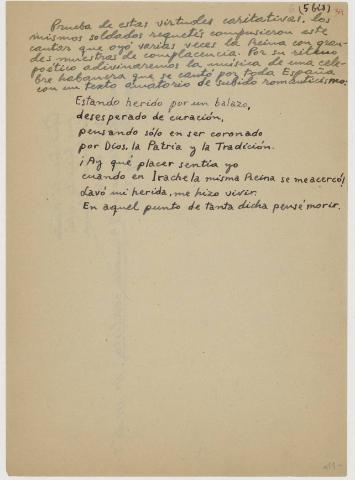 5(63)
Prueba de estas virtudes caritativas, los
mismos soldados requetés compusieron este
cantar que oyó varias veces la Reina con gran-
des muestras de complacencia. Por su ritmo
poético adivinaremos la música de una céle-
bre habanera que se cantó por toda España
con un texto amatorio de subido romanticismo:
Estando herido por un balazo,
desesperado de curación,
pensando sólo en ser coronado
por Dios, la Patria y la Tradición.
¡Ay qué placer sentía yo
cuando en Irache la misma Reina se me acercó!
Lavó mi herida, me hizo vivir.
En aquel punto de tanta dicha pensé morir.